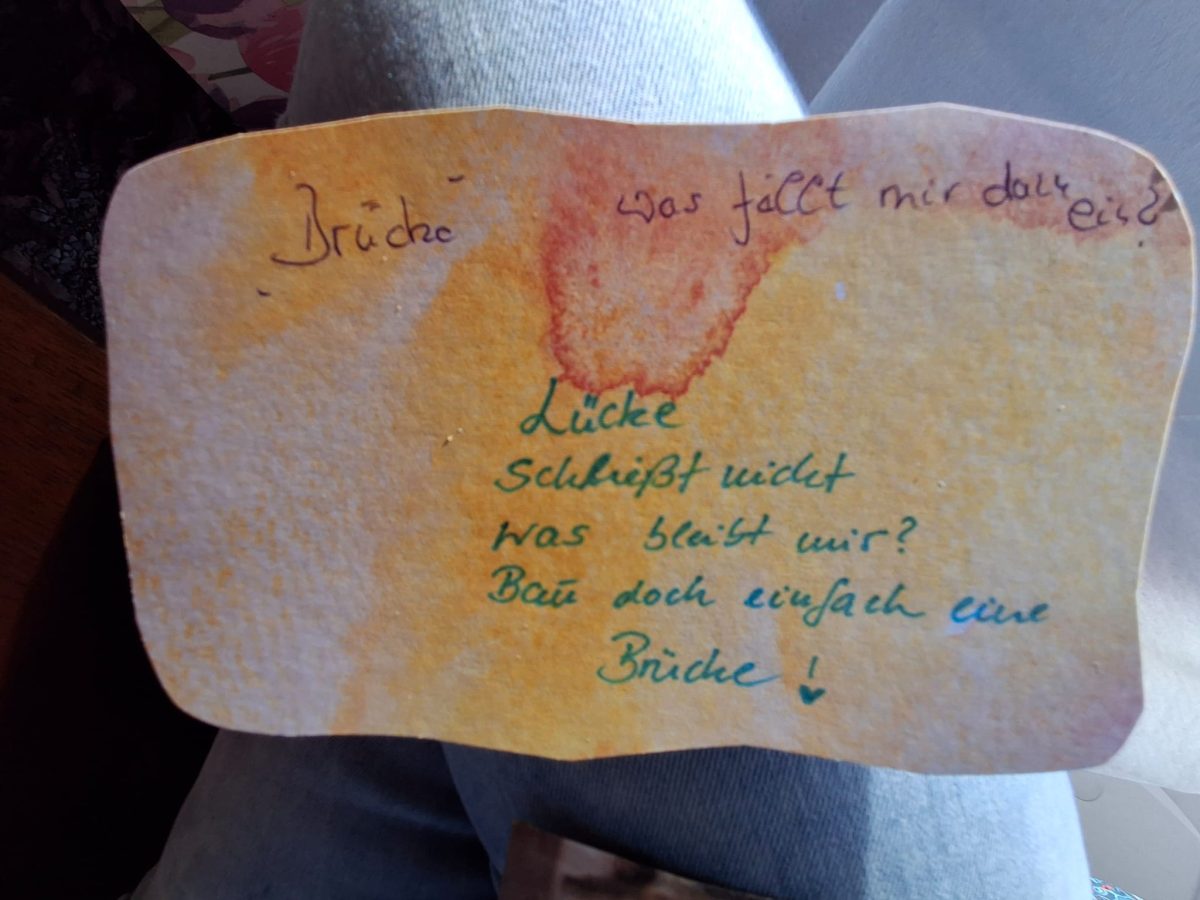 "Brücke" was fällt mir dazu ein?
Lücke
schließt nicht
was bleibt mir?
Bau doch einfach eine
Brücke!